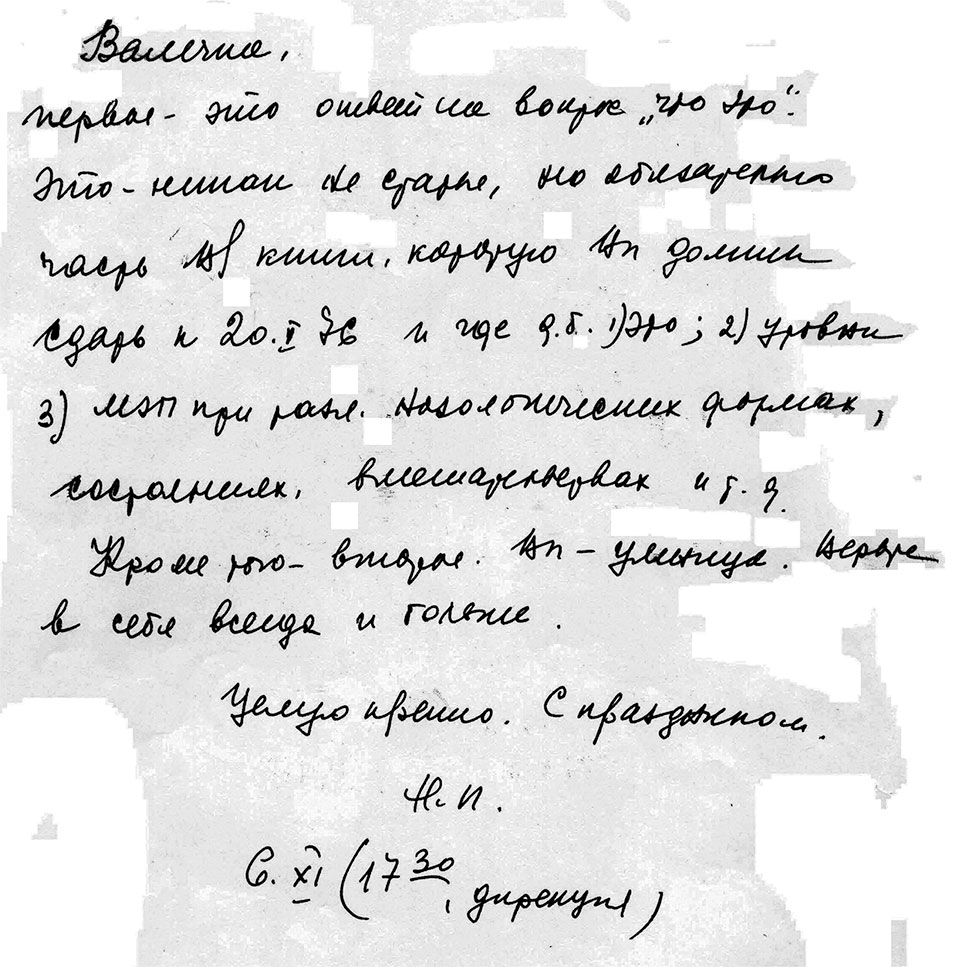 Валечка,
первое - это ответ на вопрос „что это".
Это - никак не статья, но обязательно
часть книги, которую Вы должны
сдать к 20.V 76 и где д.б. 1) Это ; 2) Уровни
3) МЭП при разл. нозологических формах,
состояниях, вмешательствах и т. д.
Кроме того - второе. Вы - умница. Верьте
в себя всегда и только.
Целую крепко. С праздником.
Н.П.
6. XI (17 30, дирекция)